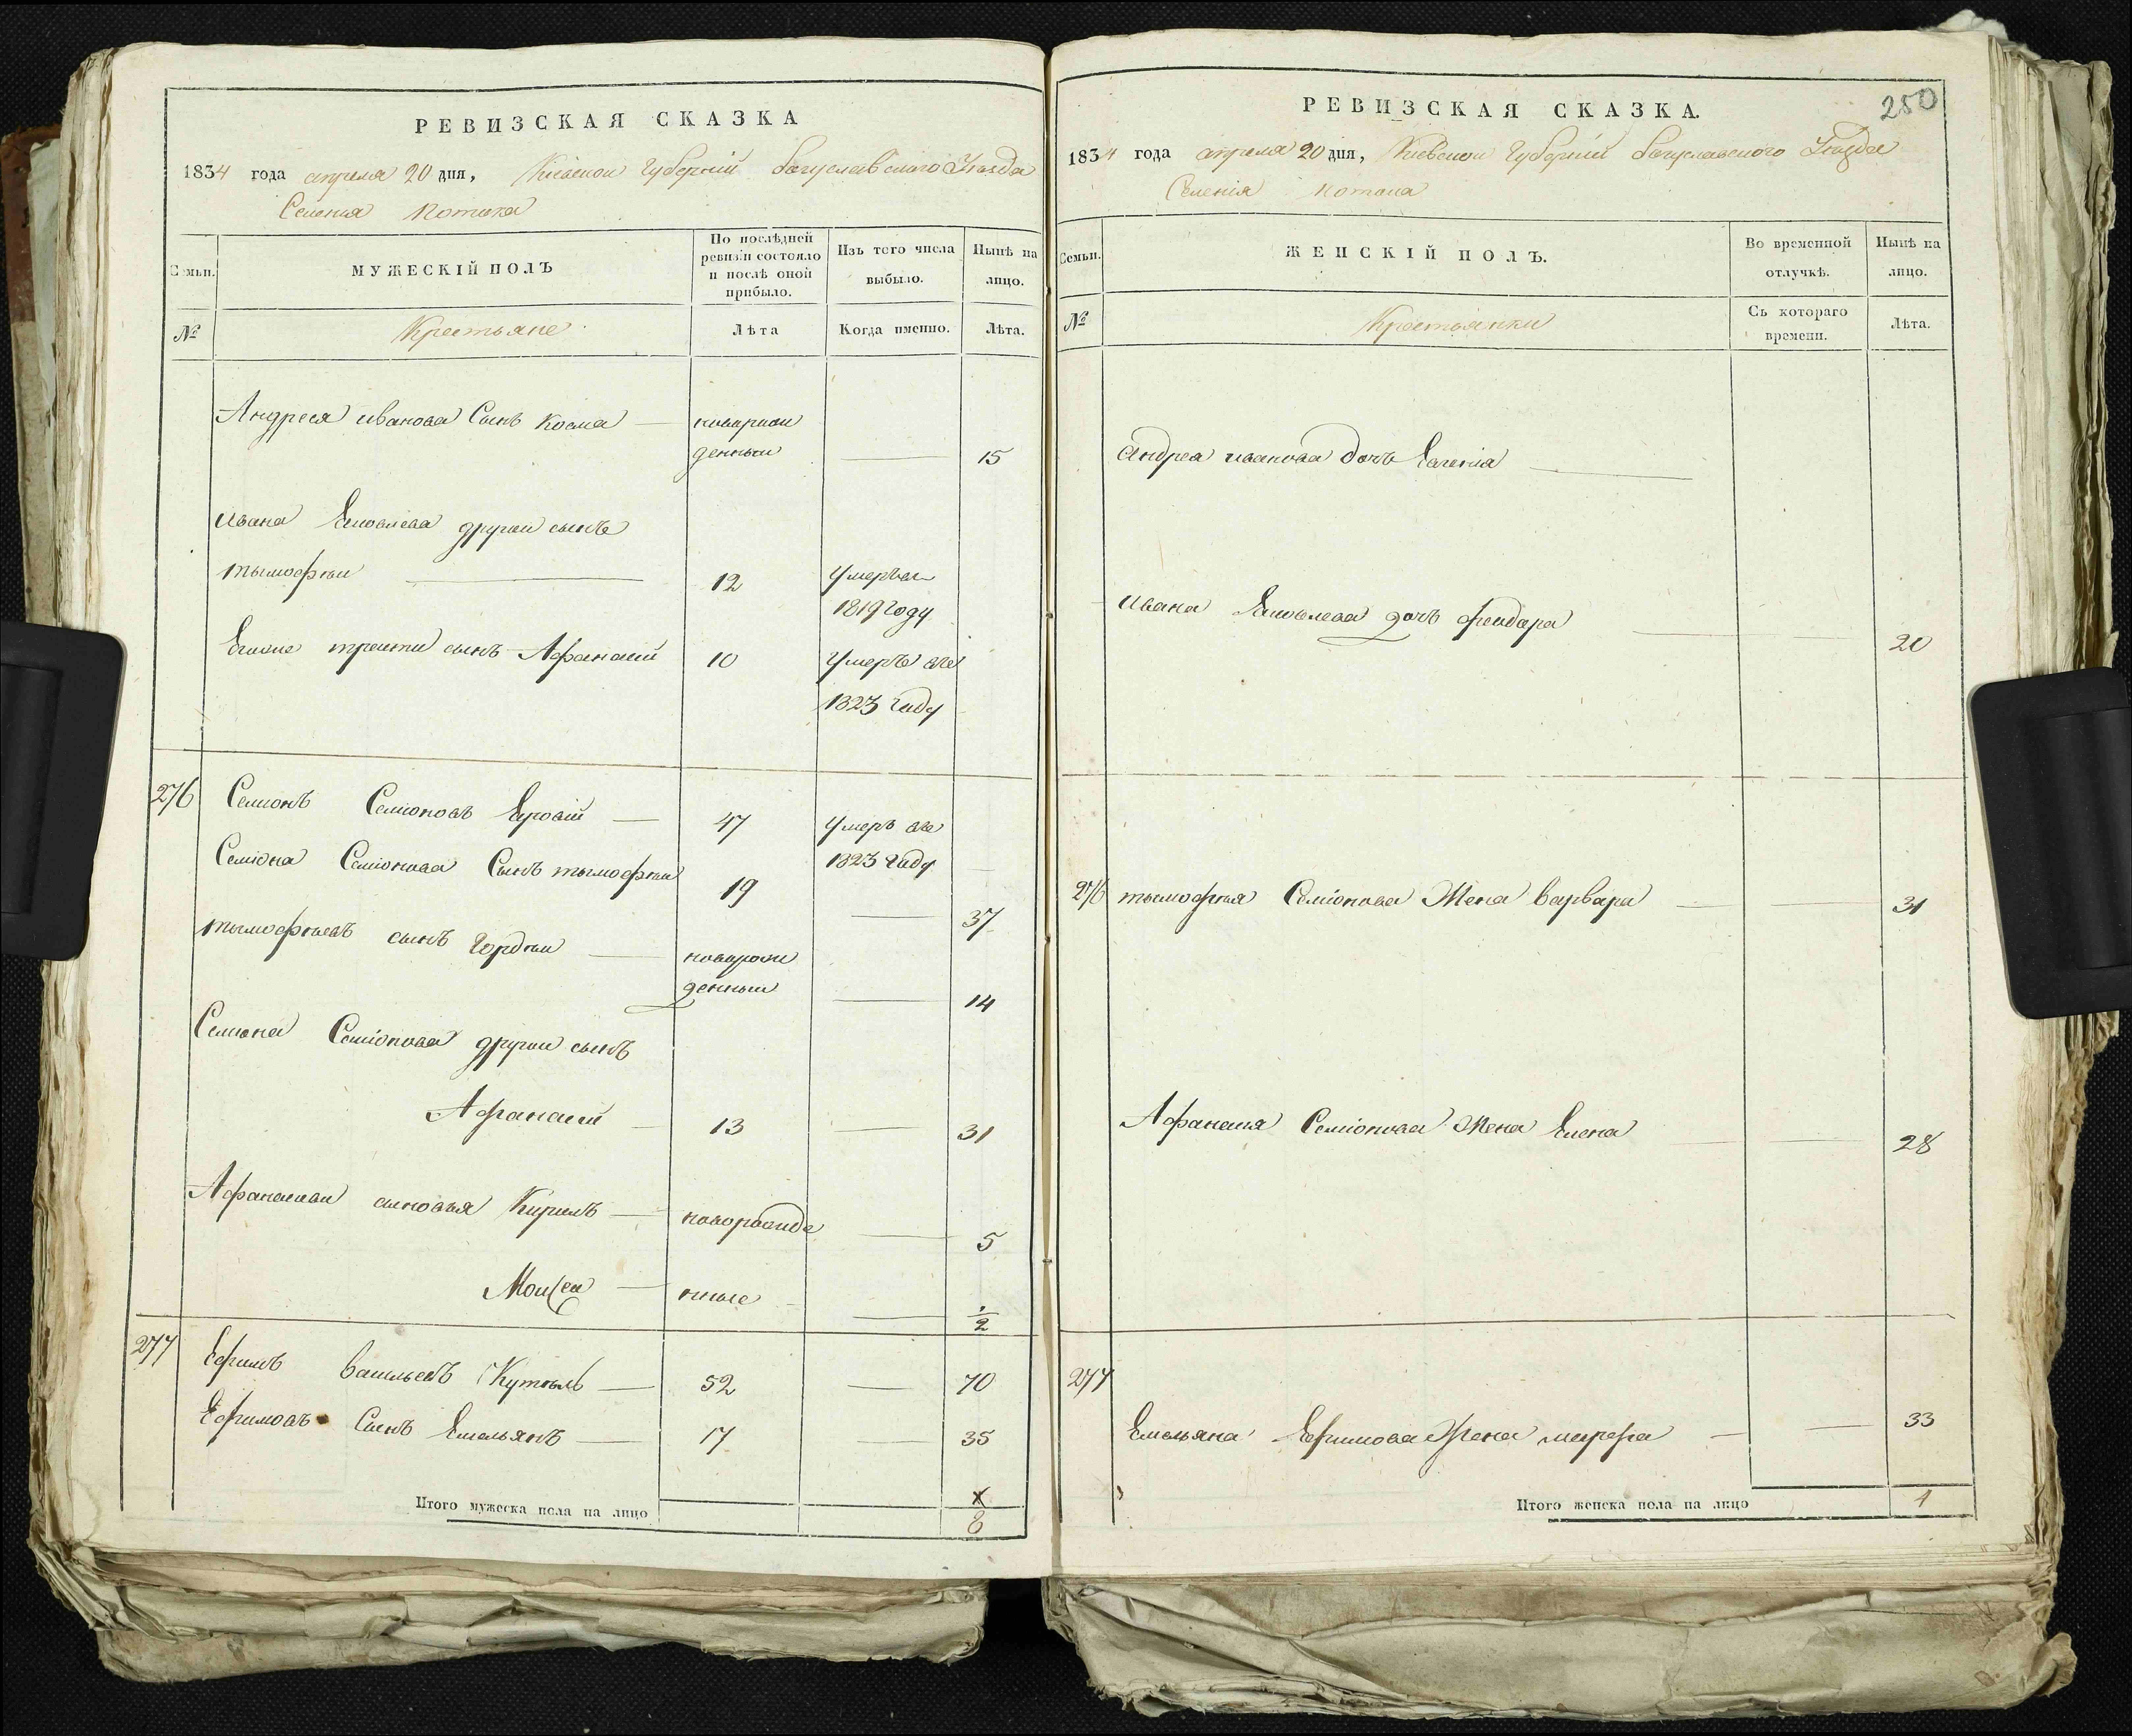 РЕВИЗСКАЯ СКАЗКА
1834 года апреля 20 дня, Кіевской Губерніи Богуславского Уезда
Селенія Потока
Семьи.
МУЖЕСКІЙ ПОЛЪ
По послѣдней ревизіи состояло и послѣ оной прибыло.
Изъ того числа выбыло.
Нынѣ на лицо.
№
Крестьяне
Лѣта
Когда именно.
Лѣта.
Андрея иванова Сынъ Козма — новорож
денныи — 15
ивана Яковлева другои сынъ
тымофеи — 12 умеръ в
1819 году
Егоже третіи сынъ Афанасий 10 умеръ в
1823 году
276 Семионъ Семионовъ — 47 умеръ в
Семіона Семіонова Сынъ тымофеи 19 1823 году
— 37
тымофеевъ сынъ Гордеи — новорож
денныи — 14
Семиона Семіонова другои сынъ
Афанасий — 13 — 31
Афанасиеви сыновья Кирилъ — новорожде — 5
Моисеи — нные — 1/2
277 Ефимъ васильевъ — 52 — 70
Ефимовъ Сынъ Емельянъ — 17 — 35
Итого мужеска пола на лицо
8
РЕВИЗСКАЯ СКАЗКА.
250
1834 года апреля 20 дня, Кіевской Губерніи Богуславского Уезда
Селенія Потока
Семьи.
ЖЕНСКІЙ ПОЛЪ.
Во временной отлучкѣ.
Нынѣ на лицо.
№
Крестьянки
Съ котораго времени.
Лѣта.
Андрея иванова дочь Евгенія —
ивана Яковлева дочь феодора — — 20
276 тымофея Семіонова Жена варвара — — 31
Афанасия Семіонова Жена Елена — — 28
277
Емельяна Ефимова Жена марфа — — 33
Итого женска пола на лицо 4